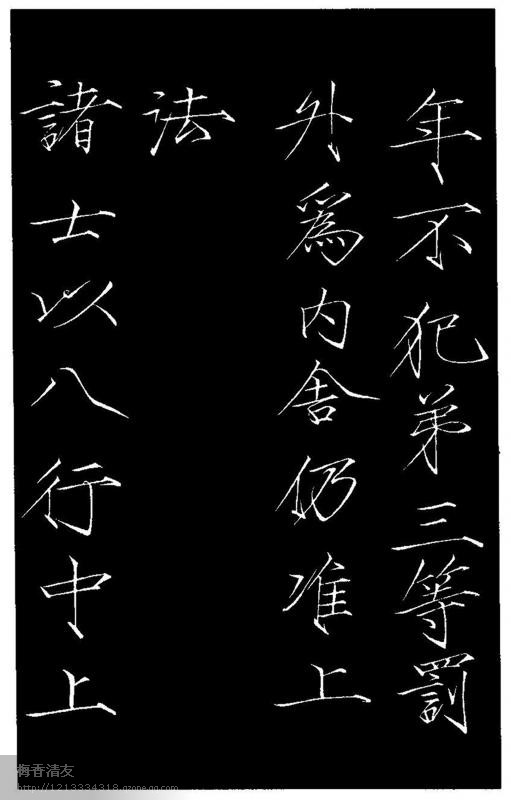 年不犯弟三等罰
外爲內舍仍准上
法
諸士以八行中上
梅香清友
http://1213334318.qzone.qq.com